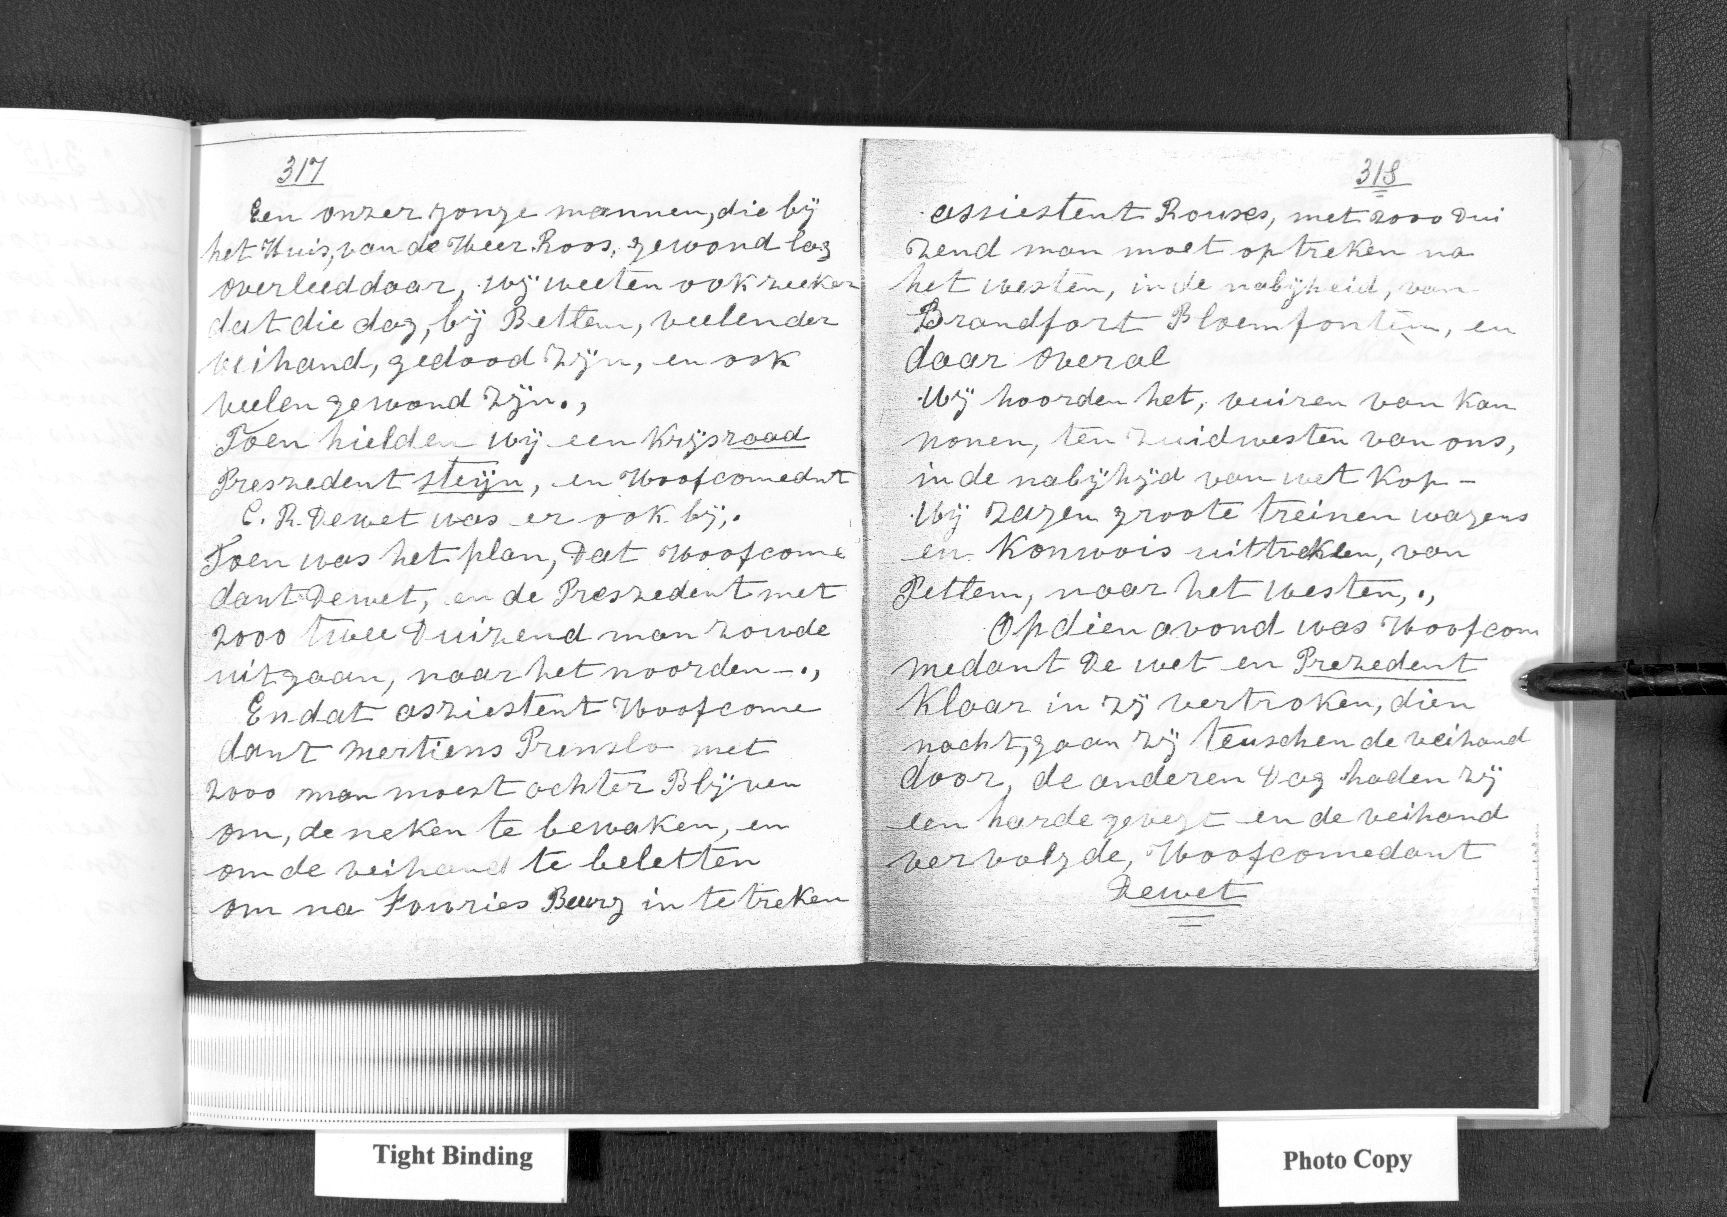 317
Een onzer jonge mannen, die bÿ
het Huis, van de Heer Roos, gewond lag
overleed daar, wÿ weeten ook zeeker
dat die dag, bÿ Bettem, veelen der
veihand, gedood zÿn, en ook
veelen gewond zÿn.,
Toen hielden wÿ een Krÿsraad
Preszedent steÿn, en Hoofcomednt
C. R. Dewet was er ook bÿ,.
Toen was het plan, Dat Hoofcome
dant Dewet, en de Preszedent met
2000 twee Duizend man zoude
uitgaan, naar het noorden -.,
En dat assiestent Hoofcome
dant Mertiens Prenslo met
2000 man moest achter Blÿven
om, de neken te bewaken, en
om de veihand te beletten
om na Fouries Beurg in te treken
318
assiestent Rouxs, met 2000 Dui
zend man moet op treken na
het westen, in de nabÿheid, van
Brandfort Bloemfontein, en
daar overal
Wÿ hoorden het, vuiren van kan
nonen, ten zuid westen van ons,
in de nabÿhÿd van wet Kop -
Wÿ zagen groote treinen wagens
en Konwois uittrekken, van
Pettem, naar het westen,.,
Op dien avond was Hoofcom
medant De wet en Prezedent
Klaar in zÿ vertroken, dien
nacht, gaan zÿ teuschen de veihand
door, de anderen Dag haden zÿ
een harde gevegt en de veihand
vervolgde, Hoofcomedant
Dewet
Tight Binding
Photo Copy